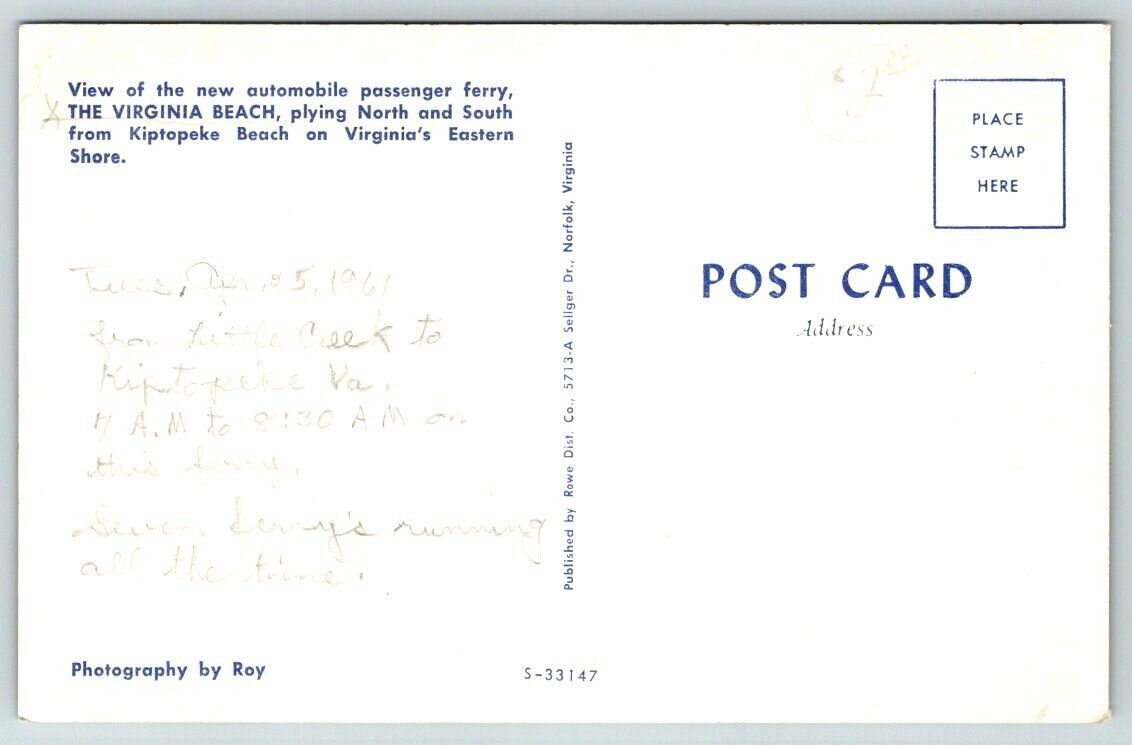 View of the new automobile passenger ferry,
X THE VIRGINIA BEACH, plying North and South
from Kiptopeke Beach on Virginia's Eastern
Shore.
Tues, Apr. 25, 1961
from Little Creek to
Kiptopeke Va.
7 A.M to 8:30 AM on
this ferry.
Seven ferry's running
all the time.
Photography by Roy
S-33147
Published by Rowe Dist. Co., 5713-A Sellger Dr., Norfolk, Virginia
$2.00
PLACE
STAMP
HERE
POST CARD
Address